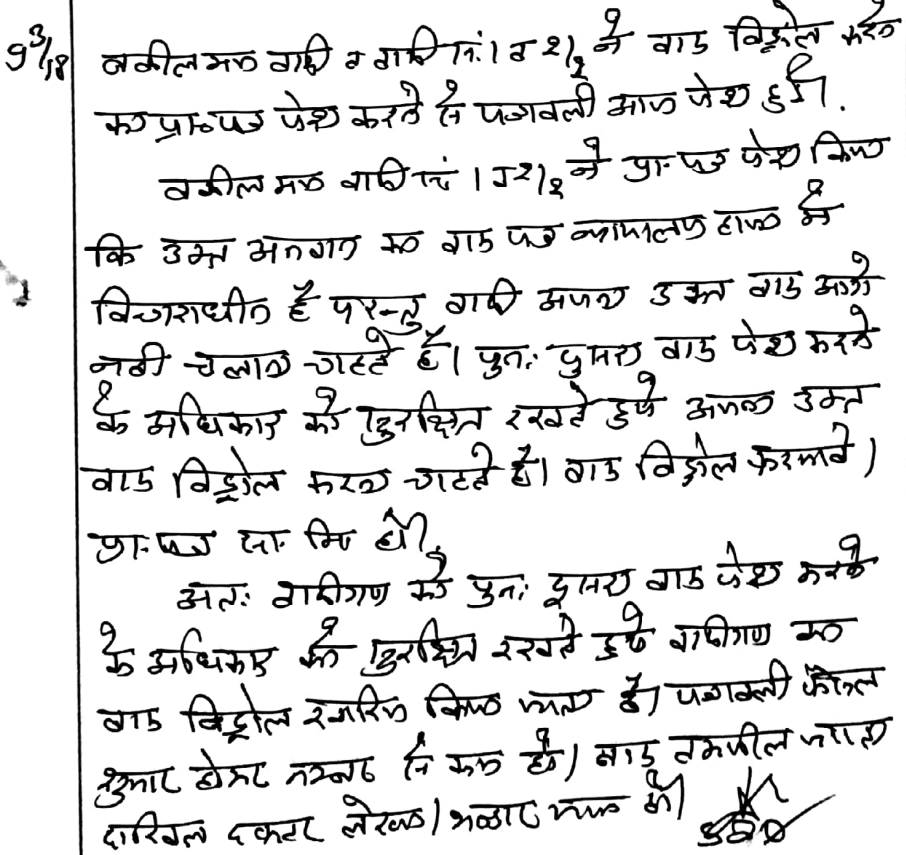 9/3/18 वकील मय वादी व वादी नं. 1 व 2 ने वाद विड्रोल करने
का प्रा.पत्र पेश करने से पत्रावली आज पेश हुई।
वकील मय वादी नं 1 व 2 ने प्रा.पत्र पेश किया
कि उक्त अनवान का वाद पत्र न्यायालय हाजा में
विचाराधीन है परन्तु वादी अपना उक्त वाद आगे
नही चलाना चाहते है। पुनः दुसरा वाद पेश करने
के अधिकार को सुरक्षित रखते हुये अपना उक्त
वाद विड्रोल करना चाहते है। वाद विड्रोल फरमावे।
प्रा.पत्र शा. मि. हो।
अतः वादीगण को पुनः दूसरा वाद पेश करने
के अधिकार को सुरक्षित रखते हुये वादीगण का
वाद विड्रोल खारिज किया जाता है। पत्रावली फैसल
शुमार होकर नम्बर से कम हो। बाद तकमील
दाखिल दफ्तर हो